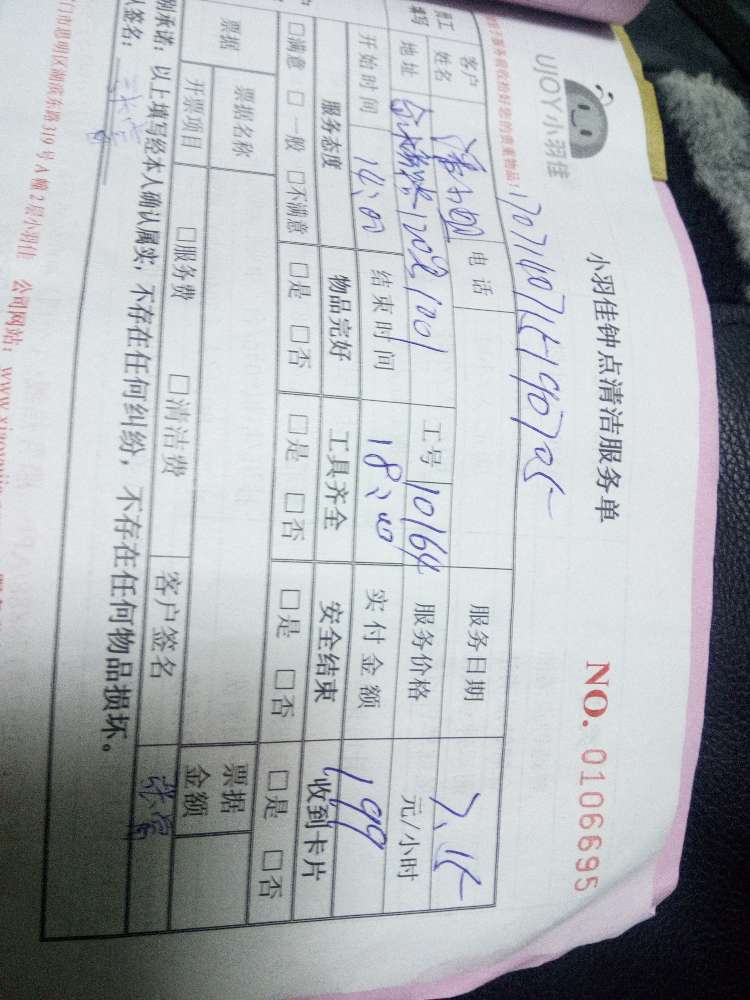 UJOY小羽佳
小羽佳钟点清洁服务单
NO. 0106695
服务前收拾好您的贵重物品!
客户
姓名
电话
服务日期
7、15
地址
1001
工号
10164
服务价格
元/小时
开始时间
14:00
结束时间
18:00
实付金额
199
服务态度
物品完好
工具齐全
安全结束
收到卡片
□满意 □一般 □不满意
□是 □否
□是 □否
□是 □否
□是 □否
票据
票据名称
票据
金额
开票项目
□服务费
□清洁费
客户签名
别承诺：以上填写经本人确认属实，不存在任何纠纷，不存在任何物品损坏。
人签名：
门市思明区湖滨东路319号A幢2层小羽佳 公司网站：